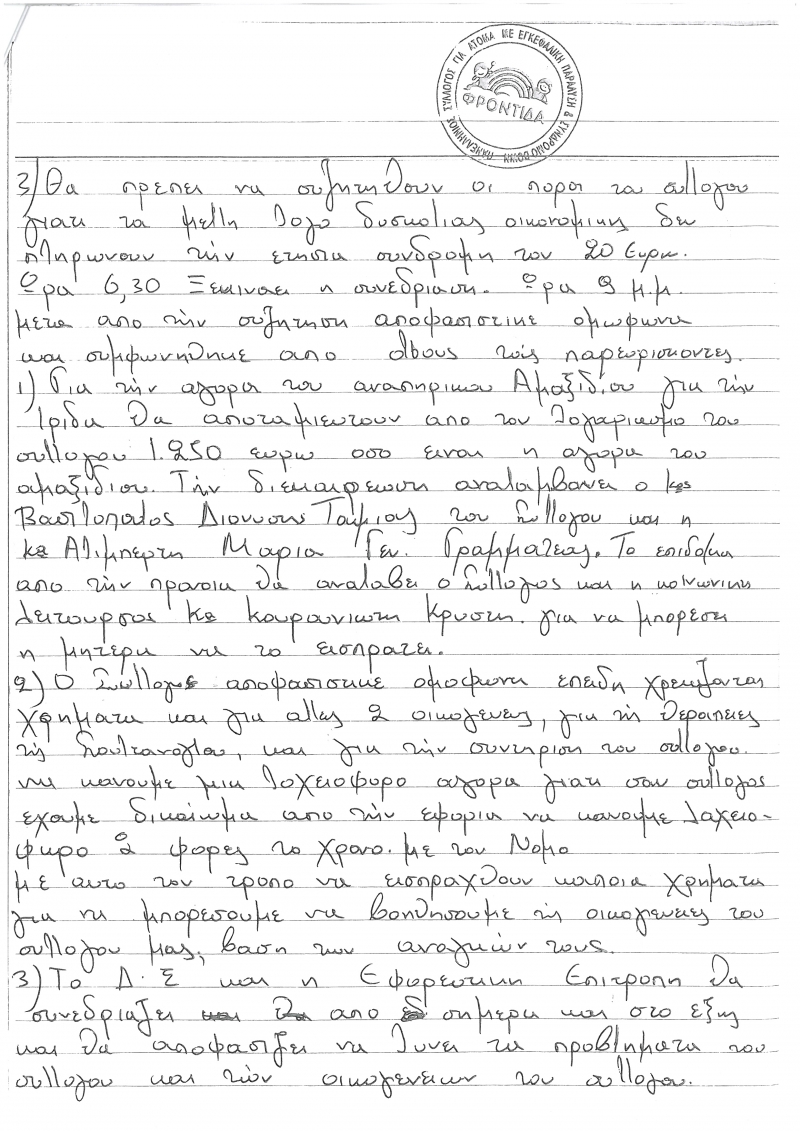 ΠΑΝΕΛΛΗΝΙΟΣ ΣΥΛΛΟΓΟΣ ΓΙΑ ΑΤΟΜΑ ΜΕ ΕΓΚΕΦΑΛΙΚΗ ΠΑΡΑΛΥΣΗ & ΣΥΝΔΡΟΜΟ DOWN
ΦΡΟΝΤΙΔΑ
3) Θα πρεπει να συζητηθουν οι ποροι του συλλογου
γιατι τα μελλη λογο δυσκολιας οικονομικης δεν
πληρωνουν τήν ετησια συνδρομη των 20 Ευρω.
Ωρα 6,30 Ξεκιναει η συνεδριαση. Ωρα 9 μ.μ.
μετα απο τήν συζητηση αποφασιστικε ομωφωνα
και συμφωνηθηκε απο όλους τούς παρευρισκοντες.
1) Για τήν αγορα του αναπηρικου Αμαξιδίου για τήν
Ίριδα θα αποταμιευτουν απο τον λογαριασμο του
συλλογου 1.250 ευρω οσο ειναι η αγορα του
αμαξιδιου. Τήν διεκπερεωση αναλαμβανει ο κος
Βασιλοπουλος Διονυσης Ταμιας του Συλλογου και η
κα Αλιμπερτη Μαρια Γεν. Γραμματεας. Το επιδομα
απο τήν προνοια θα αναλαβει ο Συλλογος και η κοινωνικη
λειτουργος κα Καυρανιωτη Κρυστη. για να μπορεση
η μητερα να το εισπρατει.
2) Ο Σύλλογος αποφασιστικε ομοφωνα επειδη χρειαζονται
χρηματα και για αλλες 2 οικογενειες, για τίς θεραπειες
τίς Σουλτανογλου, και για τήν συντηριση του συλλογου.
να κανουμε μια λαχειοφορο αγορα γιατι σαν συλλογος
εχουμε δικαίωμα απο τήν εφορια να κανουμε λαχειο-
φορο 2 φορες το χρονο. με τον Νομο
με αυτο τον τροπο να εισπραχθουν καποια χρηματα
για να μπορεσουμε να βοηθησουμε τίς οικογενειες του
συλλογου μας, βαση των αναγκών τους.
3) Το Δ.Σ και η Εφορευτικη Επιτροπη θα
συνεδριαζει απο σημερα και στο εξης
και θα αποφασιζει να λυνει τα προβληματα του
συλλογου και τών οικογενειων του συλλογου.